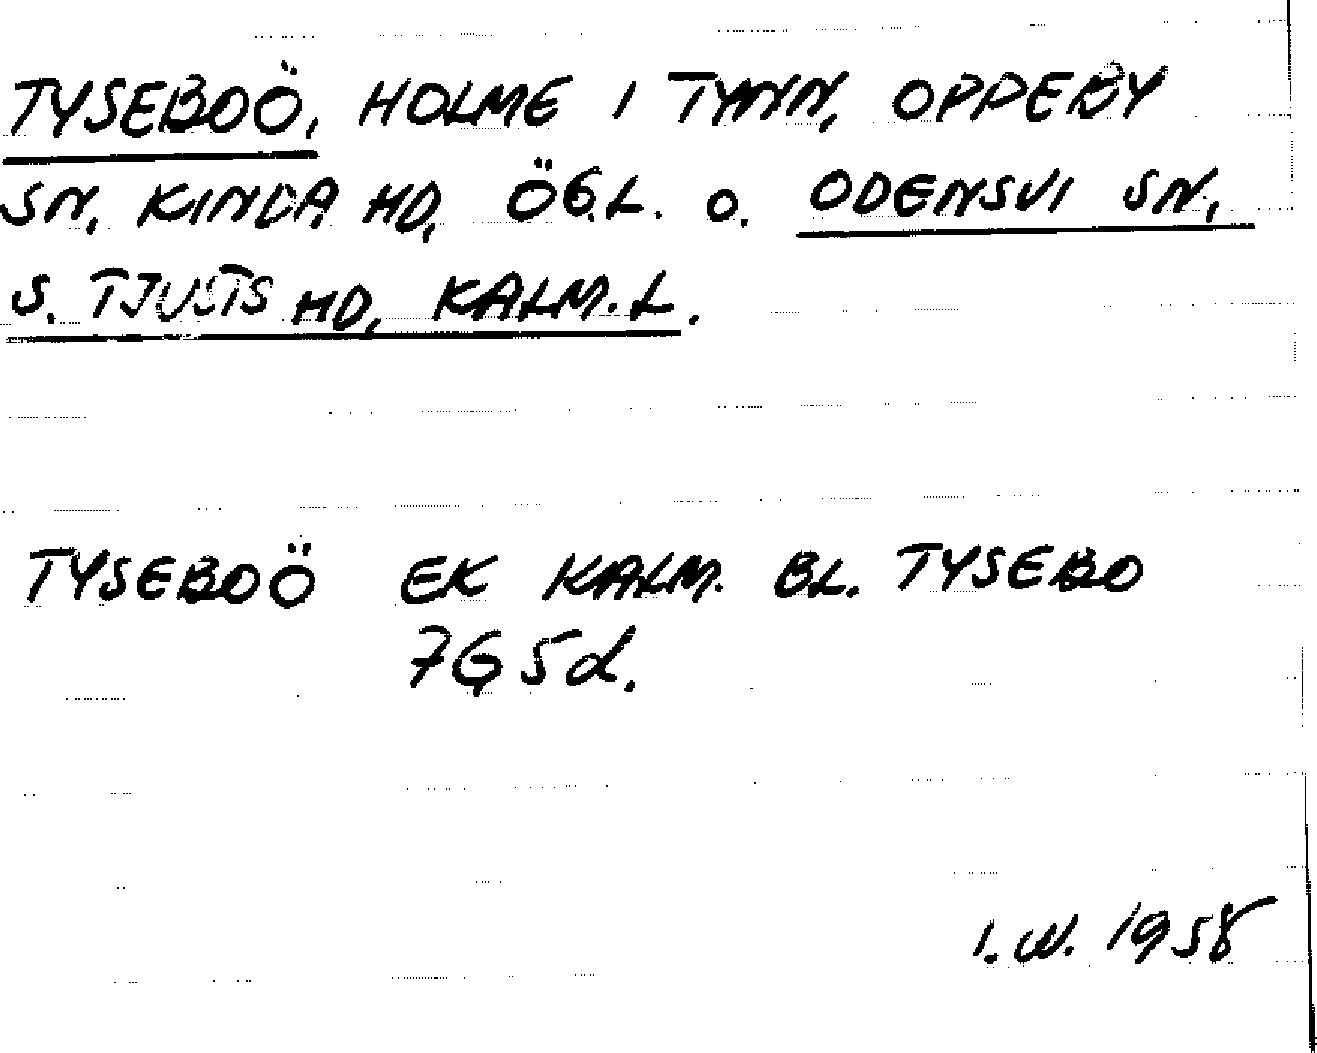 TYSEBOÖ, HOLME I TYNN, OPPEBY
SN, KINDA HD, ÖG.L. O. ODENSVI SN,
S. TJUSTS HD, KALM.L.
TYSEBOÖ EK KALM. BL. TYSEBO
7G5d.
I.W. 1958